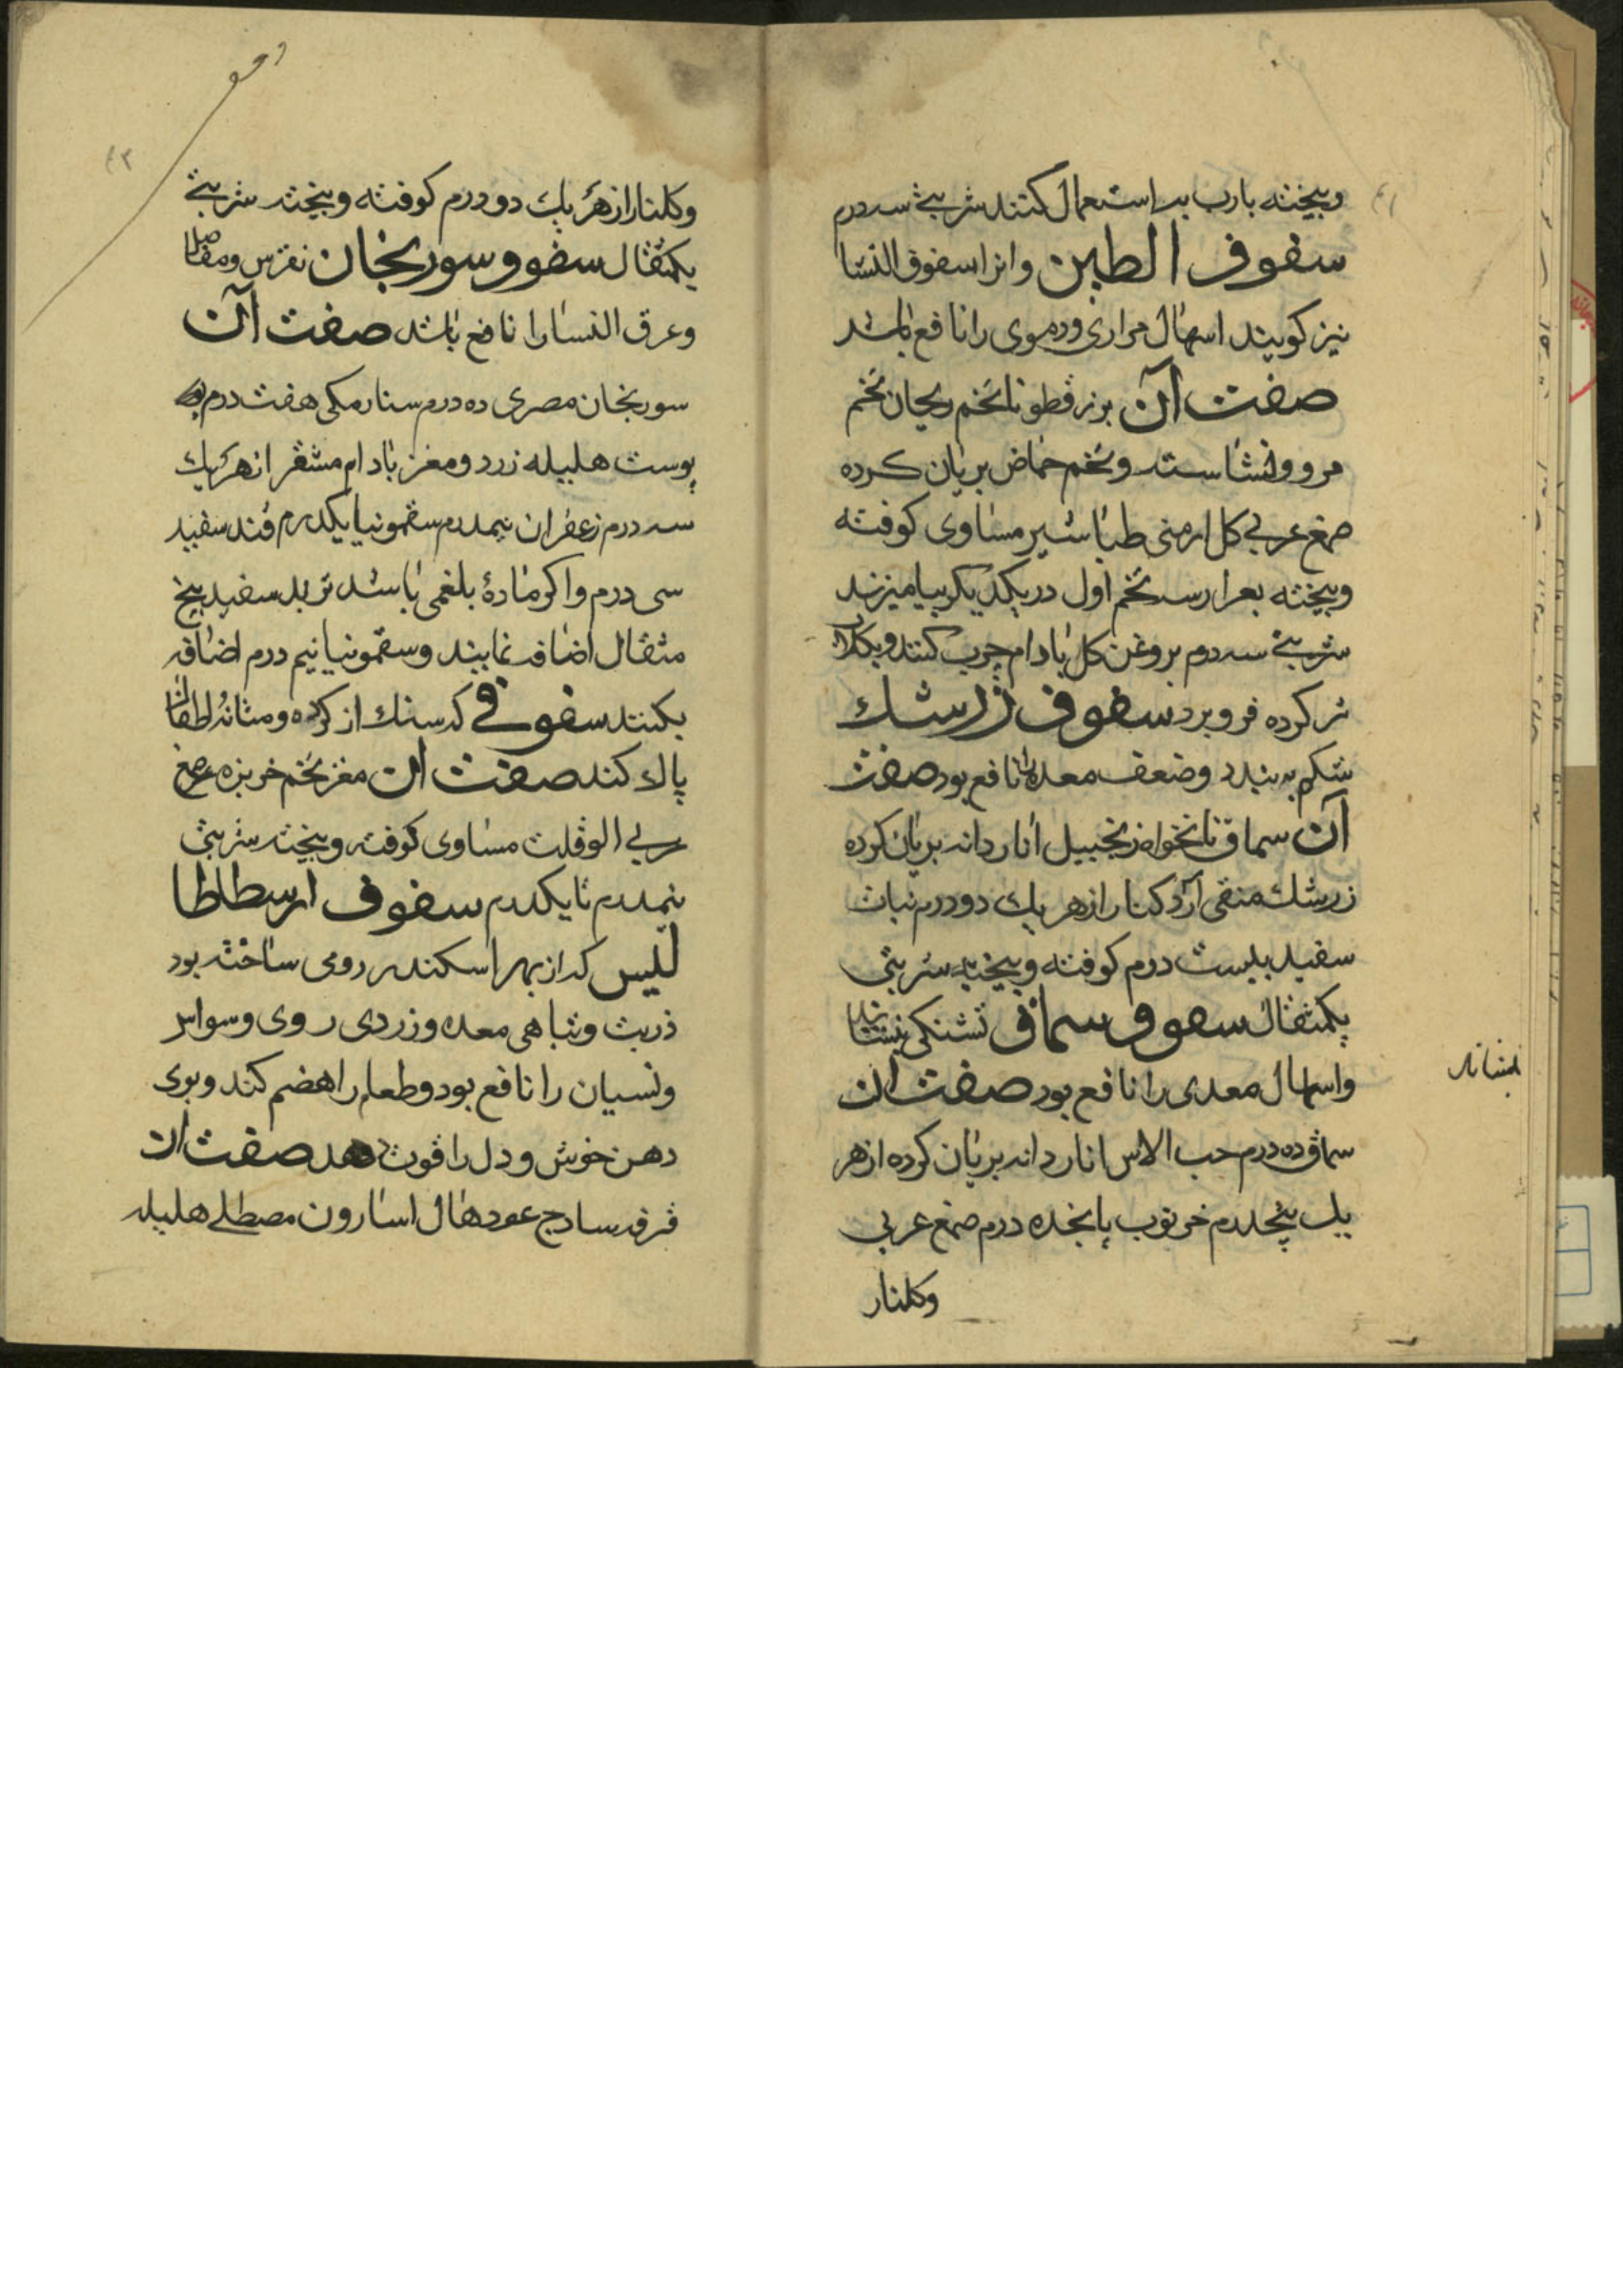 وبیخته بارب به استعمال کنند شربتی سه درم
سفوف الطین وانرا سفوف النشا
نیز کویند اسهال مراری ودموی را نافع باشد
صفت آن بزرقطونا تخم ریحان تخم
مرو ونشاسته وتخم حماض بریان کرده
صمغ عربی کل ارمنی طباشیر مساوی کوفته
وبیخته بعد از سه تخم اول در یکدیکر بیامیزند
شربتی سه درم بروغن کل بادام چرب کنند وبکلاب
تر کرده فرو برد سفوف زرشک
شکم به بندد وضعف معده را نافع بود صفت
آن سماق نانخواه زنجبیل انار دانه بریان کرده
زرشک منقی آرد کنار از هر یک دو درم نبات
سفید بیست درم کوفته وبیخته شربتی
یکمثقال سفوف سماق تشنکی بنشاند
واسهال معدی را نافع بود صفت ان
سماق ده درم حب الاس انار دانه بریان کرده از هر
یک پنجدرم خرنوب پانجده درم صمغ عربی
وکلنار
بنشاند
وکلنار از هر یک دو درم کوفته وبیخته شربتی
یکمثقال سفوف سورنجان نقرس ومفاصل
وعرق النسا را نافع باشد صفت آن
سورنجان مصری ده درم سنار مکی هفت درم
پوست هلیله زرد ومغز بادام مقشر از هر یک
سه درم زعفران نیمدرم سقمونیا یکدرم قند سفید
سی درم واکر مادهٔ بلغمی باشد تربد سفید پنج
مثقال اضافه نمایند وسقمونیا نیم درم اضافه
بکنند سفوفی که سنک از کرده ومثانه اطفال
پاک کند صفت ان مغز تخم خربزه صمغ
عربی الوقلت مساوی کوفته وبیخته شربتی
نیمدرم تا یکدرم سفوف ارسطاطا
لیس که از بهر اسکندر رومی ساخته بود
ذربت وتباهی معده وزردی روی وسواس
ونسیان را نافع بود وطعام را هضم کند وبوی
دهن خوش ودل را قوت دهد صفت ان
قرفه سادج عود هال اسارون مصطلی هلیله